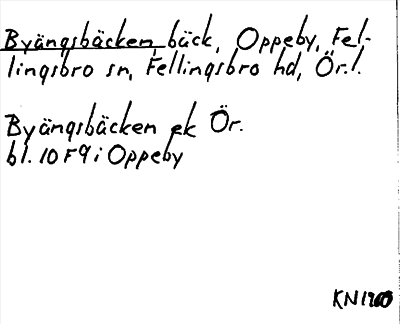 Byängsbäcken, bäck, Oppeby, Fel-
lingsbro sn, Fellingsbro hd, Ör.l.
Byängsbäcken ek Ör.
bl. 10 F9 i Oppeby